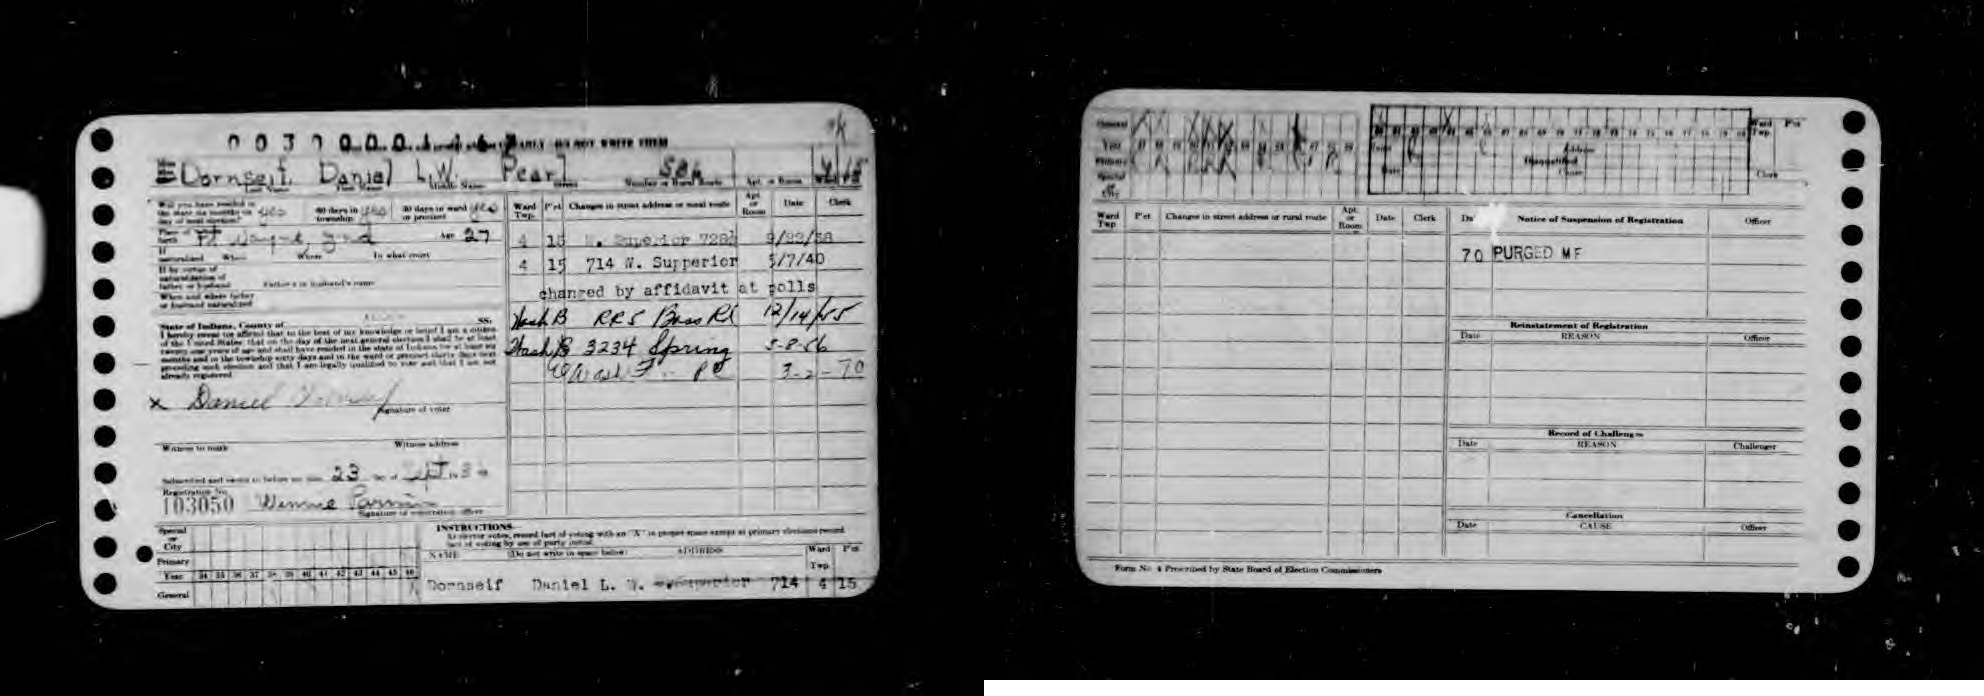 Dornseif, Daniel L.W. Pearl
Last Name Middle Name Street Number or Rural Route Apt. or Room
Will you have resided in
the state six months on yes 60 days in yes 30 days in ward yes
day of next election? township or precinct
Place of
birth Ft Wayne, Ind Age 27
If
naturalized When Where In what court
If by virtue of
naturalization of
father or husband Father's or husband's name
When and where father
or husband naturalized
State of Indiana, County of SS.
I hereby swear (or affirm) that to the best of my knowledge or belief I am a citizen
of the United States; that on the day of the next general election I shall be at least
twenty-one years of age and shall have resided in the state of Indiana for at least six
months and in the township sixty days and in the ward or precinct thirty days next
preceding such election and that I am legally qualified to vote and that I am not
already registered
x Daniel
Signature of voter
Witness to mark Witness address
Subscribed and sworn to before me this 23 day of Sept 19
Registration No.
103050 Winnie
Signature of registration officer
Ward Twp. P'ct Changes in street address or rural route Apt. or Room Date Clerk
4 15 W. Superior 9/22/38
4 15 714 W. Supperior 5/7/40
changed by affidavit at polls
Wash B RR5 Bass Rd 12/14/55
Wash B 3234 Spring 5-8-56
Wash F 3-2-70
Special
or
City
Primary
Year 34 35 36 37 38 39 40 41 42 43 44 45 46
General
INSTRUCTIONS
As elector votes, record fact of voting with an "X" in proper space except at primary elections record
fact of voting by use of party initial.
NAME (Do not write in space below) ADDRESS Ward Twp P'ct
Dornseif Daniel L. W. Superior 714 4 15
General
Year
Primary
Special
or
City
Ward Twp. P'ct
Address
Disqualified
Date Cause Clerk
Ward Twp P'ct Changes in street address or rural route Apt. or Room Date Clerk
Notice of Suspension of Registration Officer
70 PURGED MF
Reinstatement of Registration
Date REASON Officer
Record of Challenges
Date REASON Challenger
Cancellation
Date CAUSE Officer
Form No. 4 Prescribed by State Board of Election Commissioners